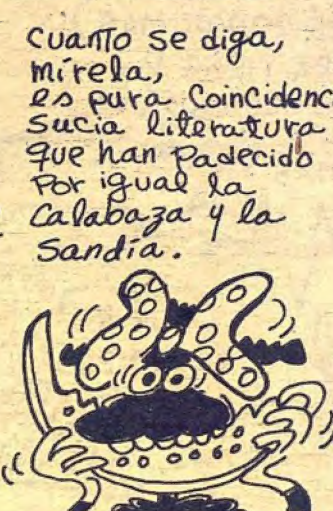 cuanto se diga,
mírela,
es pura Coincidenc
Sucia literatura
que han Padecido
Por igual la
Calabaza y la
Sandía.